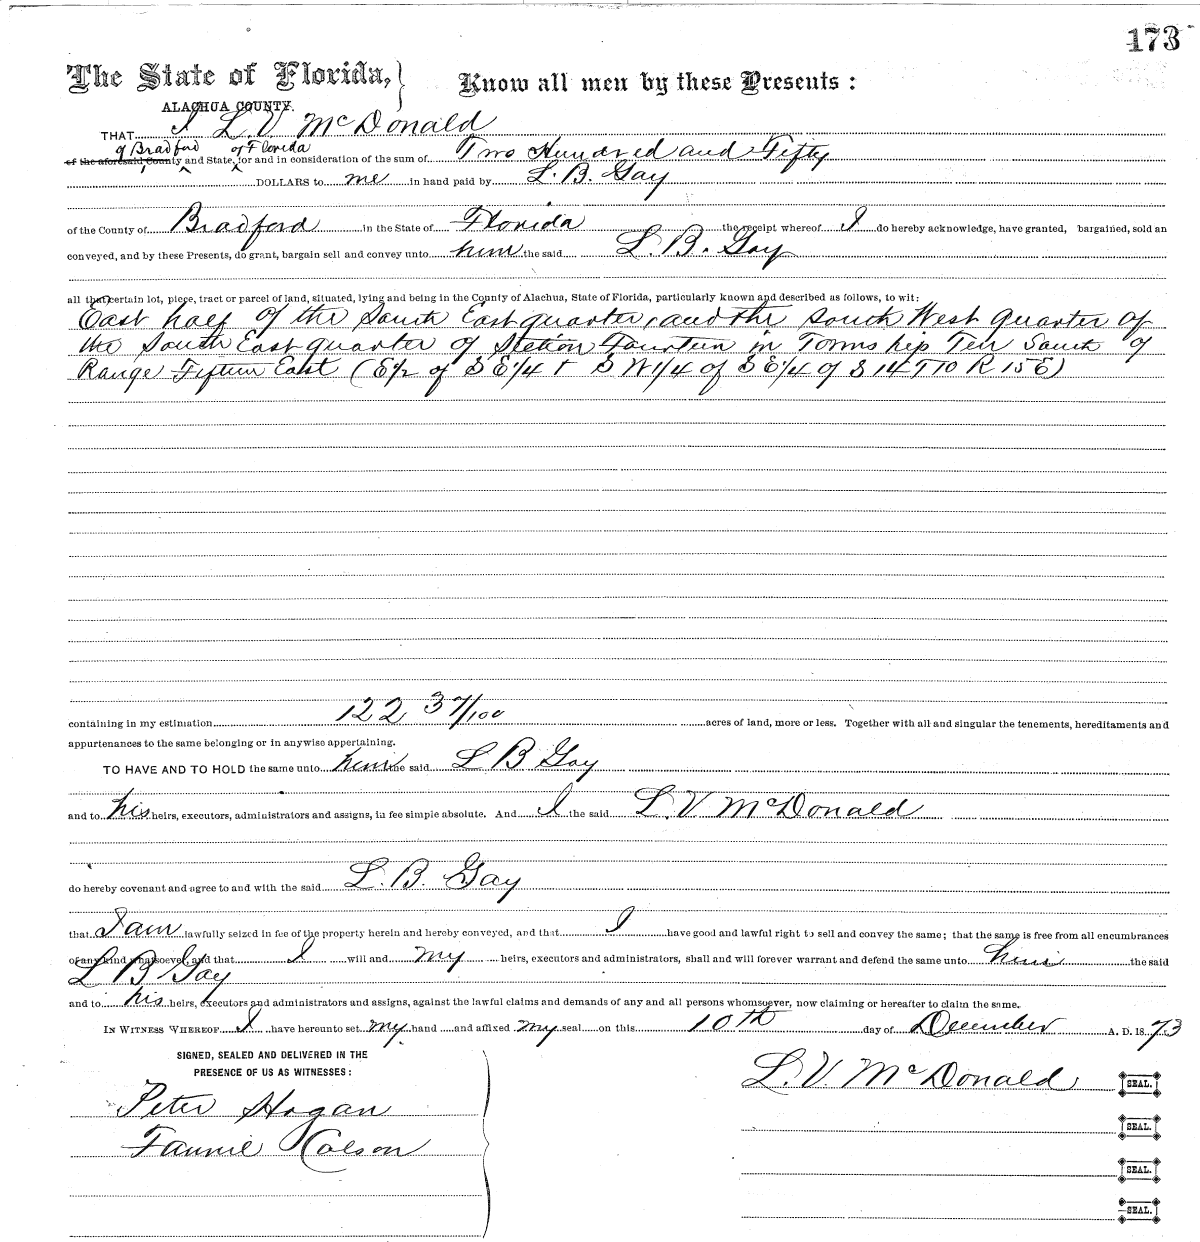 173
The State of Florida, Know all men by these Presents :
ALACHUA COUNTY.
THAT I L. V McDonald
of Bradford of Florida
of the aforesaid County and State, for and in consideration of the sum of Two Hundred and Fifty
DOLLARS to me in hand paid by L. B. Gay
of the County of Bradford in the State of Florida the receipt whereof I do hereby acknowledge, have granted, bargained, sold an
conveyed, and by these Presents, do grant, bargain sell and convey unto him the said L. B. Gay
all that certain lot, piece, tract or parcel of land, situated, lying and being in the County of Alachua, State of Florida, particularly known and described as follows, to wit:
East half of the South East quarter, and the South West Quarter of
the South East quarter of Section Fourteen in Township Ten South of
Range Fifteen East (E/2 of S E 1/4 & S W 1/4 of S E 1/4 of S 14 T 10 R 15 E)
containing in my estimation 122 37/100 acres of land, more or less. Together with all and singular the tenements, hereditaments and
appurtenances to the same belonging or in anywise appertaining.
TO HAVE AND TO HOLD the same unto him the said L B Gay
and to his heirs, executors, administrators and assigns, in fee simple absolute. And I the said L. V. McDonald
do hereby covenant and agree to and with the said L. B. Gay
that I am lawfully seized in fee of the property herein and hereby conveyed, and that I have good and lawful right to sell and convey the same; that the same is free from all encumbrances
of any kind whatsoever, and that I will and my heirs, executors and administrators, shall and will forever warrant and defend the same unto him the said
L B Gay
and to his heirs, executors and administrators and assigns, against the lawful claims and demands of any and all persons whomsoever, now claiming or hereafter to claim the same.
IN WITNESS WHEREOF I have hereunto set my hand and affixed my seal on this 10th day of December A. D. 1873
SIGNED, SEALED AND DELIVERED IN THE
PRESENCE OF US AS WITNESSES :
L. V. McDonald SEAL.
Peter Hogan
SEAL.
Fannie Colson
SEAL.
SEAL.